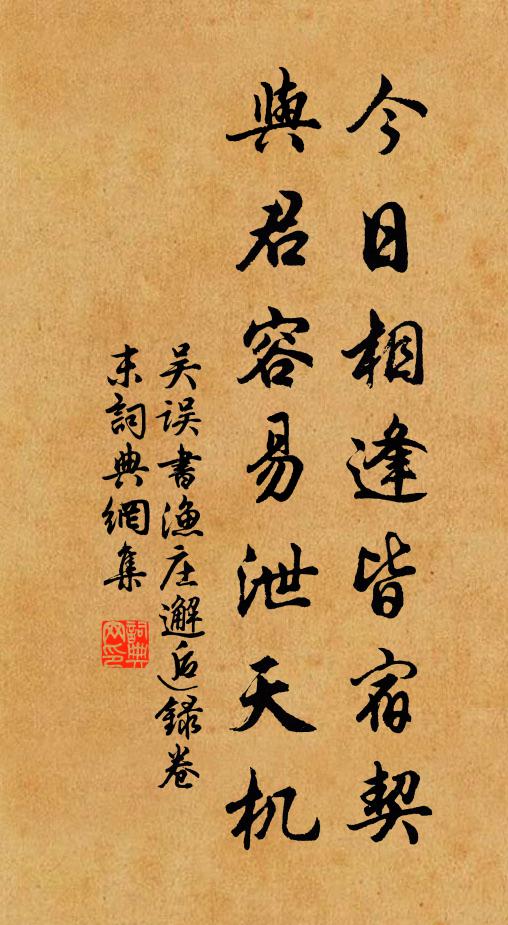 今日相逢皆宿契
與君容易泄天机
吴误書漁庄邂逅録卷
末詞典網集
詞典网印